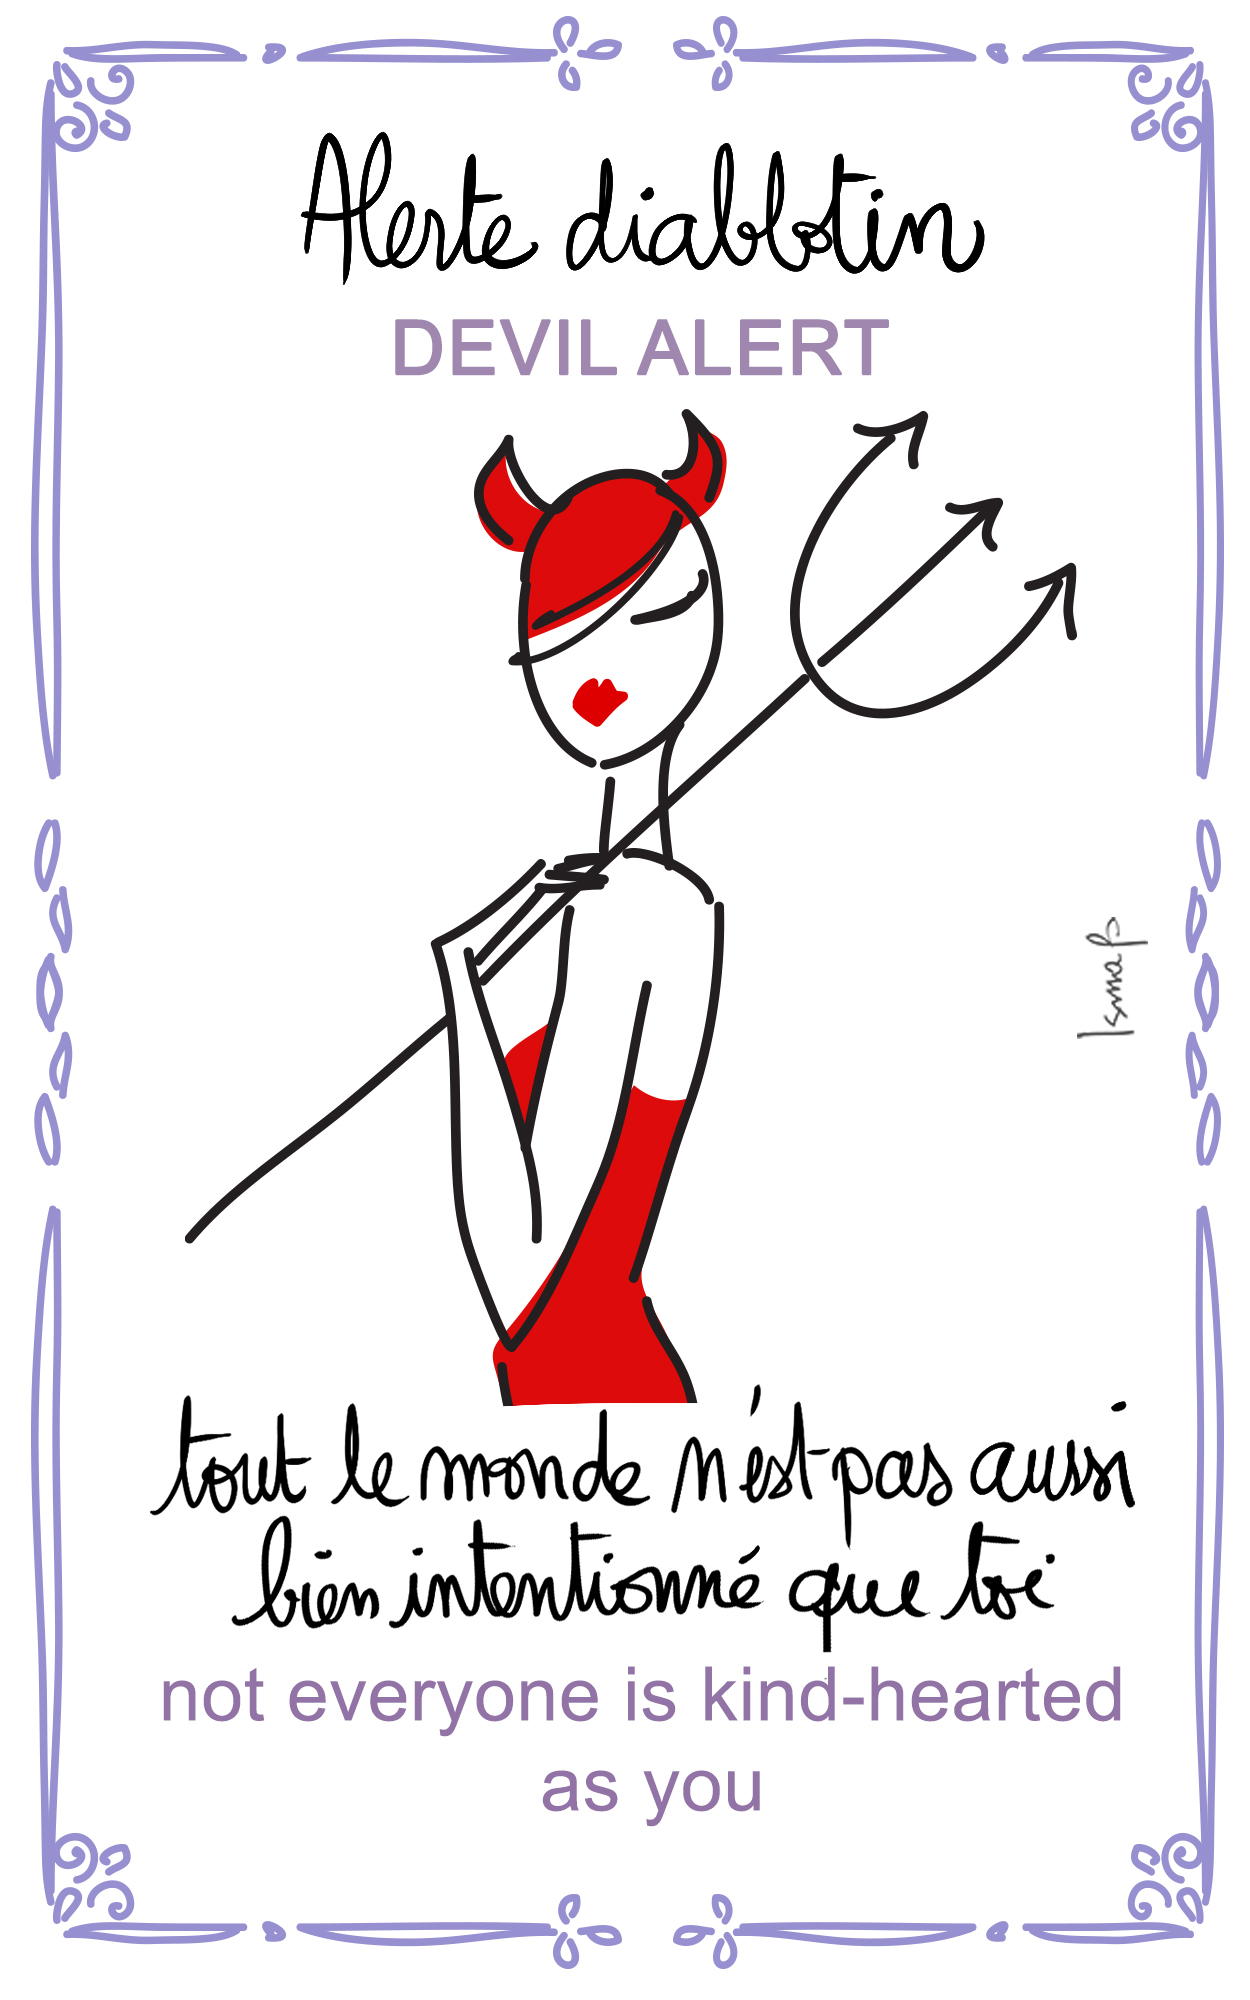 Alerte diablotin
DEVIL ALERT
IsmaB
tout le monde n'est pas aussi
bien intentionné que toi
not everyone is kind-hearted
as you